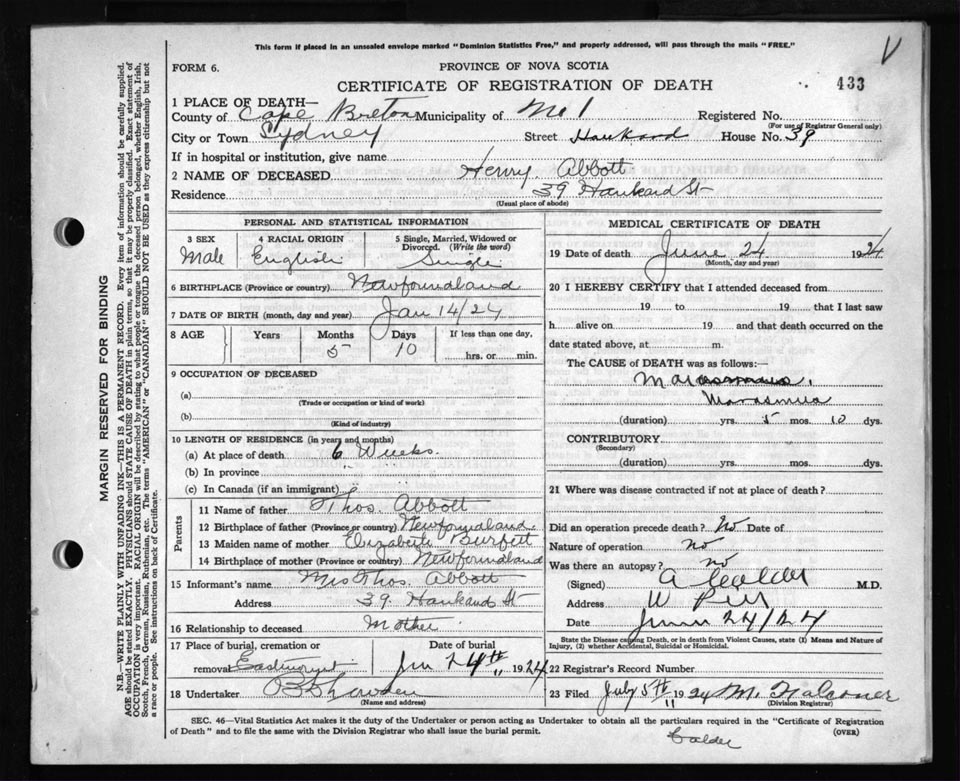 This form if placed in an unsealed envelope marked "Dominion Statistics Free," and properly addressed, will pass through the mails "FREE."
V
FORM 6.
PROVINCE OF NOVA SCOTIA
CERTIFICATE OF REGISTRATION OF DEATH
433
1 PLACE OF DEATH—
County of Cape Breton Municipality of No 1 Registered No.
(For use of Registrar General only)
City or Town Sydney Street Hankard House No. 39
If in hospital or institution, give name
2 NAME OF DECEASED Henry Abbott
Residence 39 Hankard St
(Usual place of abode)
PERSONAL AND STATISTICAL INFORMATION
3 SEX 4 RACIAL ORIGIN 5 Single, Married, Widowed or Divorced. (Write the word)
Male English Single
6 BIRTHPLACE (Province or country) Newfoundland
7 DATE OF BIRTH (month, day and year) Jan 14/24
8 AGE Years Months Days If less than one day,
5 10 hrs. or min.
9 OCCUPATION OF DECEASED
(a)
(Trade or occupation or kind of work)
(b)
(Kind of industry)
10 LENGTH OF RESIDENCE (in years and months)
(a) At place of death 6 Weeks
(b) In province
(c) In Canada (if an immigrant)
Parents
11 Name of father Thos. Abbott
12 Birthplace of father (Province or country) Newfoundland
13 Maiden name of mother Elizabeth Burfett
14 Birthplace of mother (Province or country) Newfoundland
15 Informant's name Mrs Thos. Abbott
Address 39 Hankard St
16 Relationship to deceased Mother
17 Place of burial, cremation or removal Date of burial
Eastmount Jun 24th 1924
18 Undertaker
(Name and address)
MEDICAL CERTIFICATE OF DEATH
19 Date of death June 24 1924
(Month, day and year)
20 I HEREBY CERTIFY that I attended deceased from
19 to 19 that I last saw
h alive on 19 and that death occurred on the
date stated above, at m.
The CAUSE of DEATH was as follows:—
Marasmus
(duration) yrs. 5 mos. 10 dys.
CONTRIBUTORY
(Secondary)
(duration) yrs. mos. dys.
21 Where was disease contracted if not at place of death?
Did an operation precede death? No Date of
Nature of operation no
Was there an autopsy? no
(Signed) A Calder M.D.
Address W Pier
Date June 24/24
State the Disease causing Death, or in death from Violent Causes, state (1) Means and Nature of
Injury, (2) whether Accidental, Suicidal or Homicidal.
22 Registrar's Record Number
23 Filed July 5th 1924 M. Falconer
(Division Registrar)
SEC. 46—Vital Statistics Act makes it the duty of the Undertaker or person acting as Undertaker to obtain all the particulars required in the "Certificate of Registration
of Death" and to file the same with the Division Registrar who shall issue the burial permit.
(OVER)
Calder
MARGIN RESERVED FOR BINDING
N.B.—WRITE PLAINLY WITH UNFADING INK—THIS IS A PERMANENT RECORD. Every item of information should be carefully supplied.
AGE should be stated EXACTLY. PHYSICIANS should STATE CAUSE OF DEATH in plain terms, so that it may be properly classified. Exact statement of
OCCUPATION is very important. RACIAL ORIGIN will be described by stating to what people or tongue the deceased person belonged, whether English, Irish,
Scotch, French, German, Russian, Ruthenian, etc. The terms "AMERICAN" or "CANADIAN" SHOULD NOT BE USED as they express citizenship but not
a race or people. See instructions on back of Certificate.